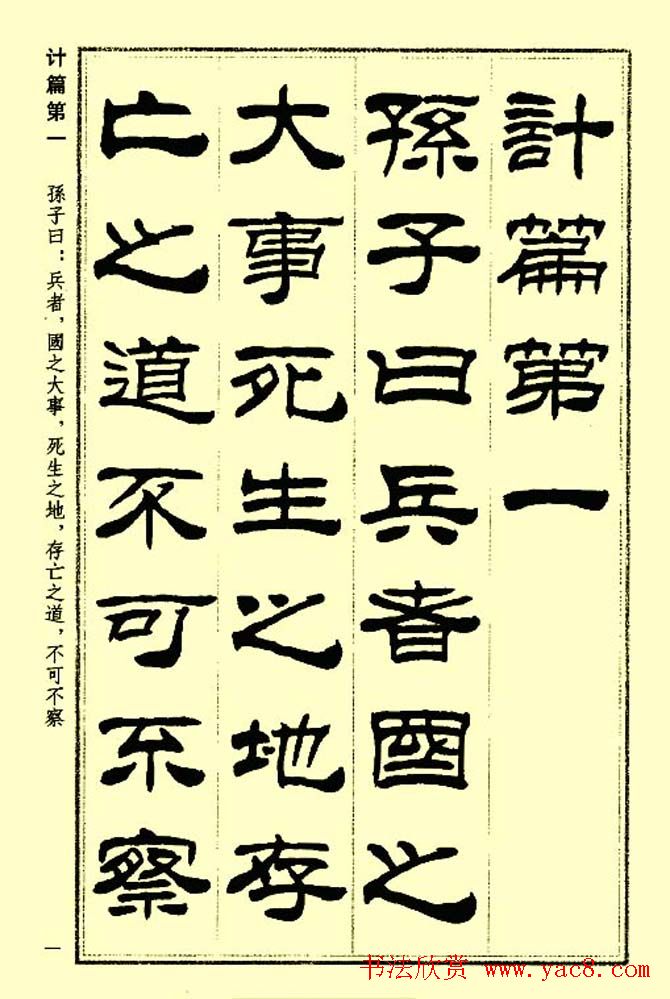 計篇第一
孫子曰兵者國之
大事死生之地存
亡之道不可不察
计篇第一 孫子曰：兵者，國之大事，死生之地，存亡之道，不可不察
一
书法欣赏 www.yac8.com